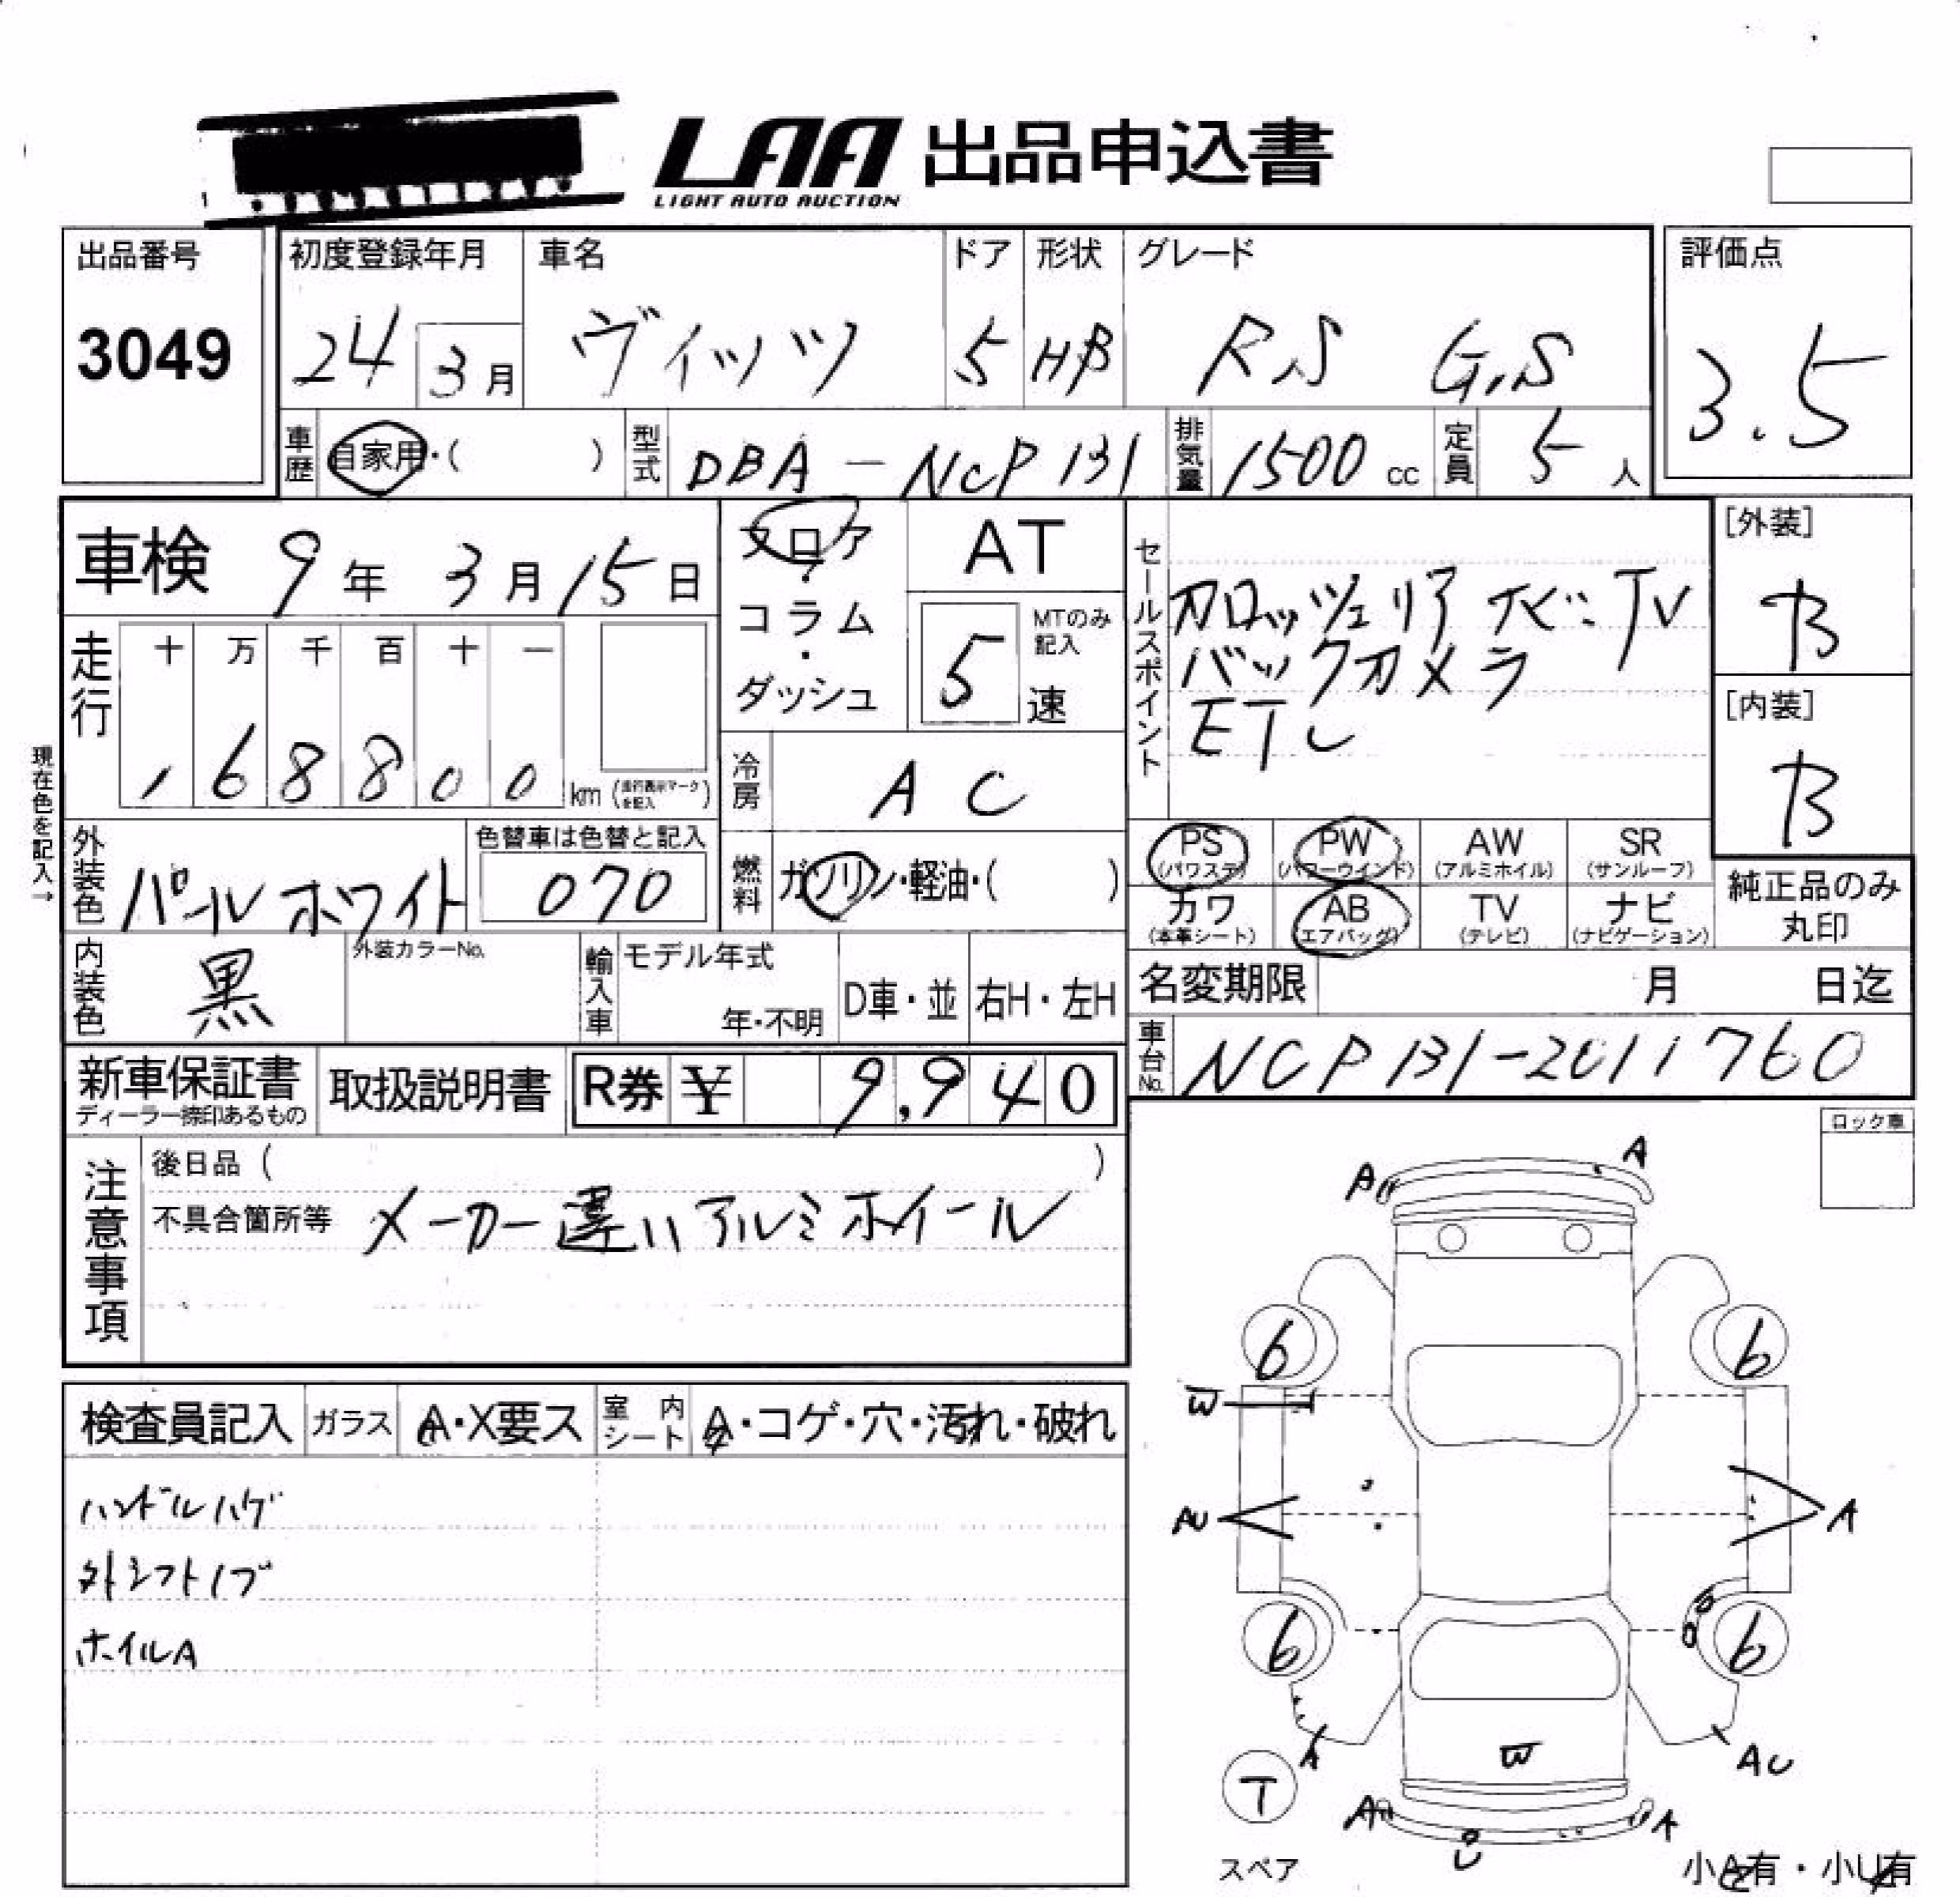 LAA 出品申込書
LIGHT AUTO AUCTION
出品番号
3049
初度登録年月
24 3月
車名
ヴィッツ
ドア
5
形状
HB
グレード
RS G,S
評価点
3.5
車歴 自家用・( )
型式 DBA-NCP131
排気量 1500 cc
定員 5 人
車検 9年 3月 15日
フロア・コラム・ダッシュ
AT
MTのみ記入
5 速
セールスポイント
カロッツェリアナビ:TV
バックカメラ
ETC
[外装]
B
[内装]
B
走行
十 万 千 百 十 一
1 6 8 8 0 0 km (走行表示マークを記入)
現在色を記入→
冷房 AC
燃料 ガソリン・軽油・( )
外装色 パールホワイト
色替車は色替と記入
070
PS (パワステ)
PW (パワーウインド)
AW (アルミホイル)
SR (サンルーフ)
カワ (本革シート)
AB (エアバッグ)
TV (テレビ)
ナビ (ナビゲーション)
純正品のみ丸印
内装色 黒
外装カラーNo.
輸入車
モデル年式
年・不明
D車・並
右H・左H
名変期限 月 日迄
車台No. NCP131-2011760
新車保証書
ディーラー捺印あるもの
取扱説明書
R券 ¥ 9,940
注意事項
後日品 ( )
不具合箇所等 メーカー違いアルミホイール
ロック車
検査員記入
ガラス A・X要ス
室内シート A・コゲ・穴・汚れ・破れ
ハンドルハゲ
外シフトノブ
ホイルA
A A
6 6
W
AU A
6 6
A W AU
T
A U A
スペア
小A有・小U有